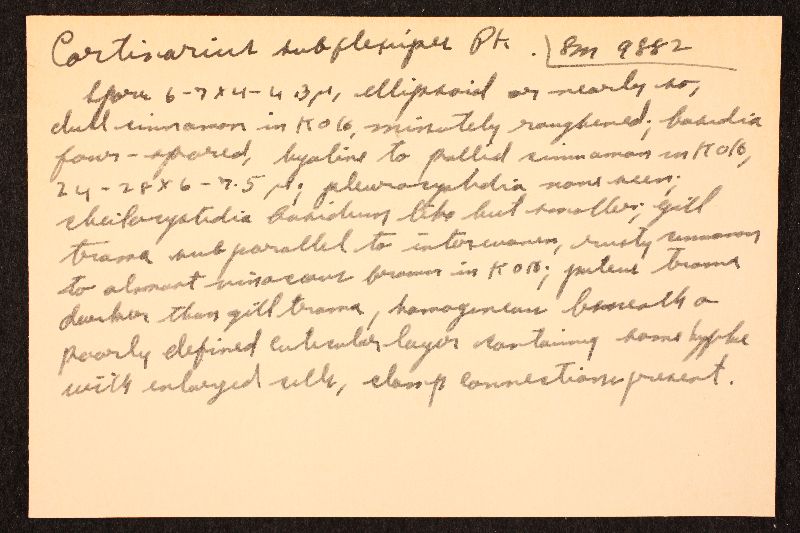 Cortinarius subflexipes Pk. Bn 9882
Spores 6-7 x 4-4.3 µ, ellipsoid or nearly so,
dull cinnamon in KOH, minutely roughened; basidia
four-spored, hyaline to pallid cinnamon in KOH,
24-28 x 6-7.5 µ; pleurocystidia none seen;
cheilocystidia basidium like but smaller; gill
trama subparallel to interwoven, rusty cinnamon
to almost vinaceous brown in KOH; pileus trama
darker than gill trama, homogeneous beneath a
poorly defined cuticular layer containing some hyphae
with enlarged cells, clamp connections present.